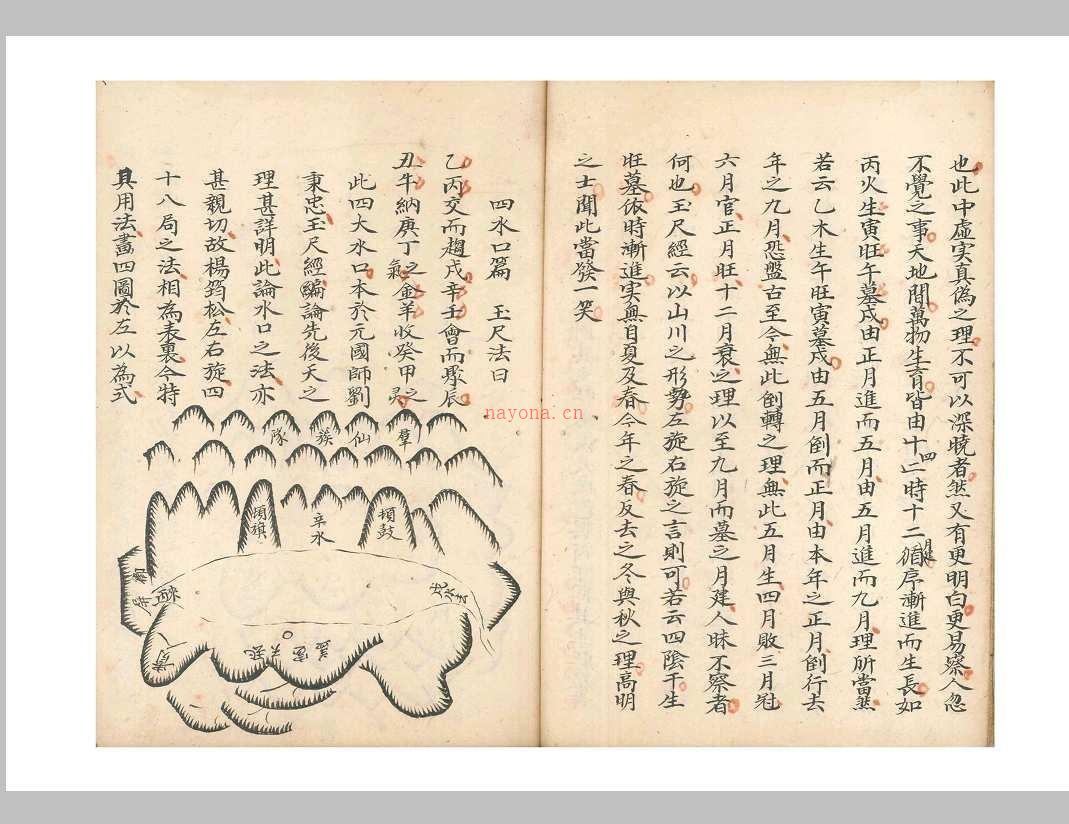 也此中虛实真偽之理不可以深曉者然又有更明白更易察人忽
不覺之事天地間萬物生育皆由十二四時十二月建循序漸進而生長如
丙火生寅旺午墓戌由正月進而五月由五月進而九月理所當然
若云乙木生午旺寅墓戌由五月倒而正月由本年之正月倒行去
年之九月恐盤古至今無此倒轉之理無此五月生四月敗三月冠
六月官正月旺十二月衰之理以至九月而墓之月建人昧不察者
何也玉尺經云以山川之形勢左旋右旋之言則可若云四陰干生
旺墓依時漸進実無自夏及春今年之春反去之冬與秋之理高明
之士聞此當發一笑
四水口篇 玉尺法曰
乙丙交而趨戌辛壬會而聚辰
丑牛納庚丁之氣金羊收癸甲之灵
此四大水口本於元國師劉
秉忠玉尺經編論先後天之
理甚詳明此論水口之法亦
甚親切故楊筠松左右旋四
十八局之法相為表裏今特
具用法畫四圖於左以為式
群 仙 簇 隊
頓鼓
辛水
頓旗
nayona.cn